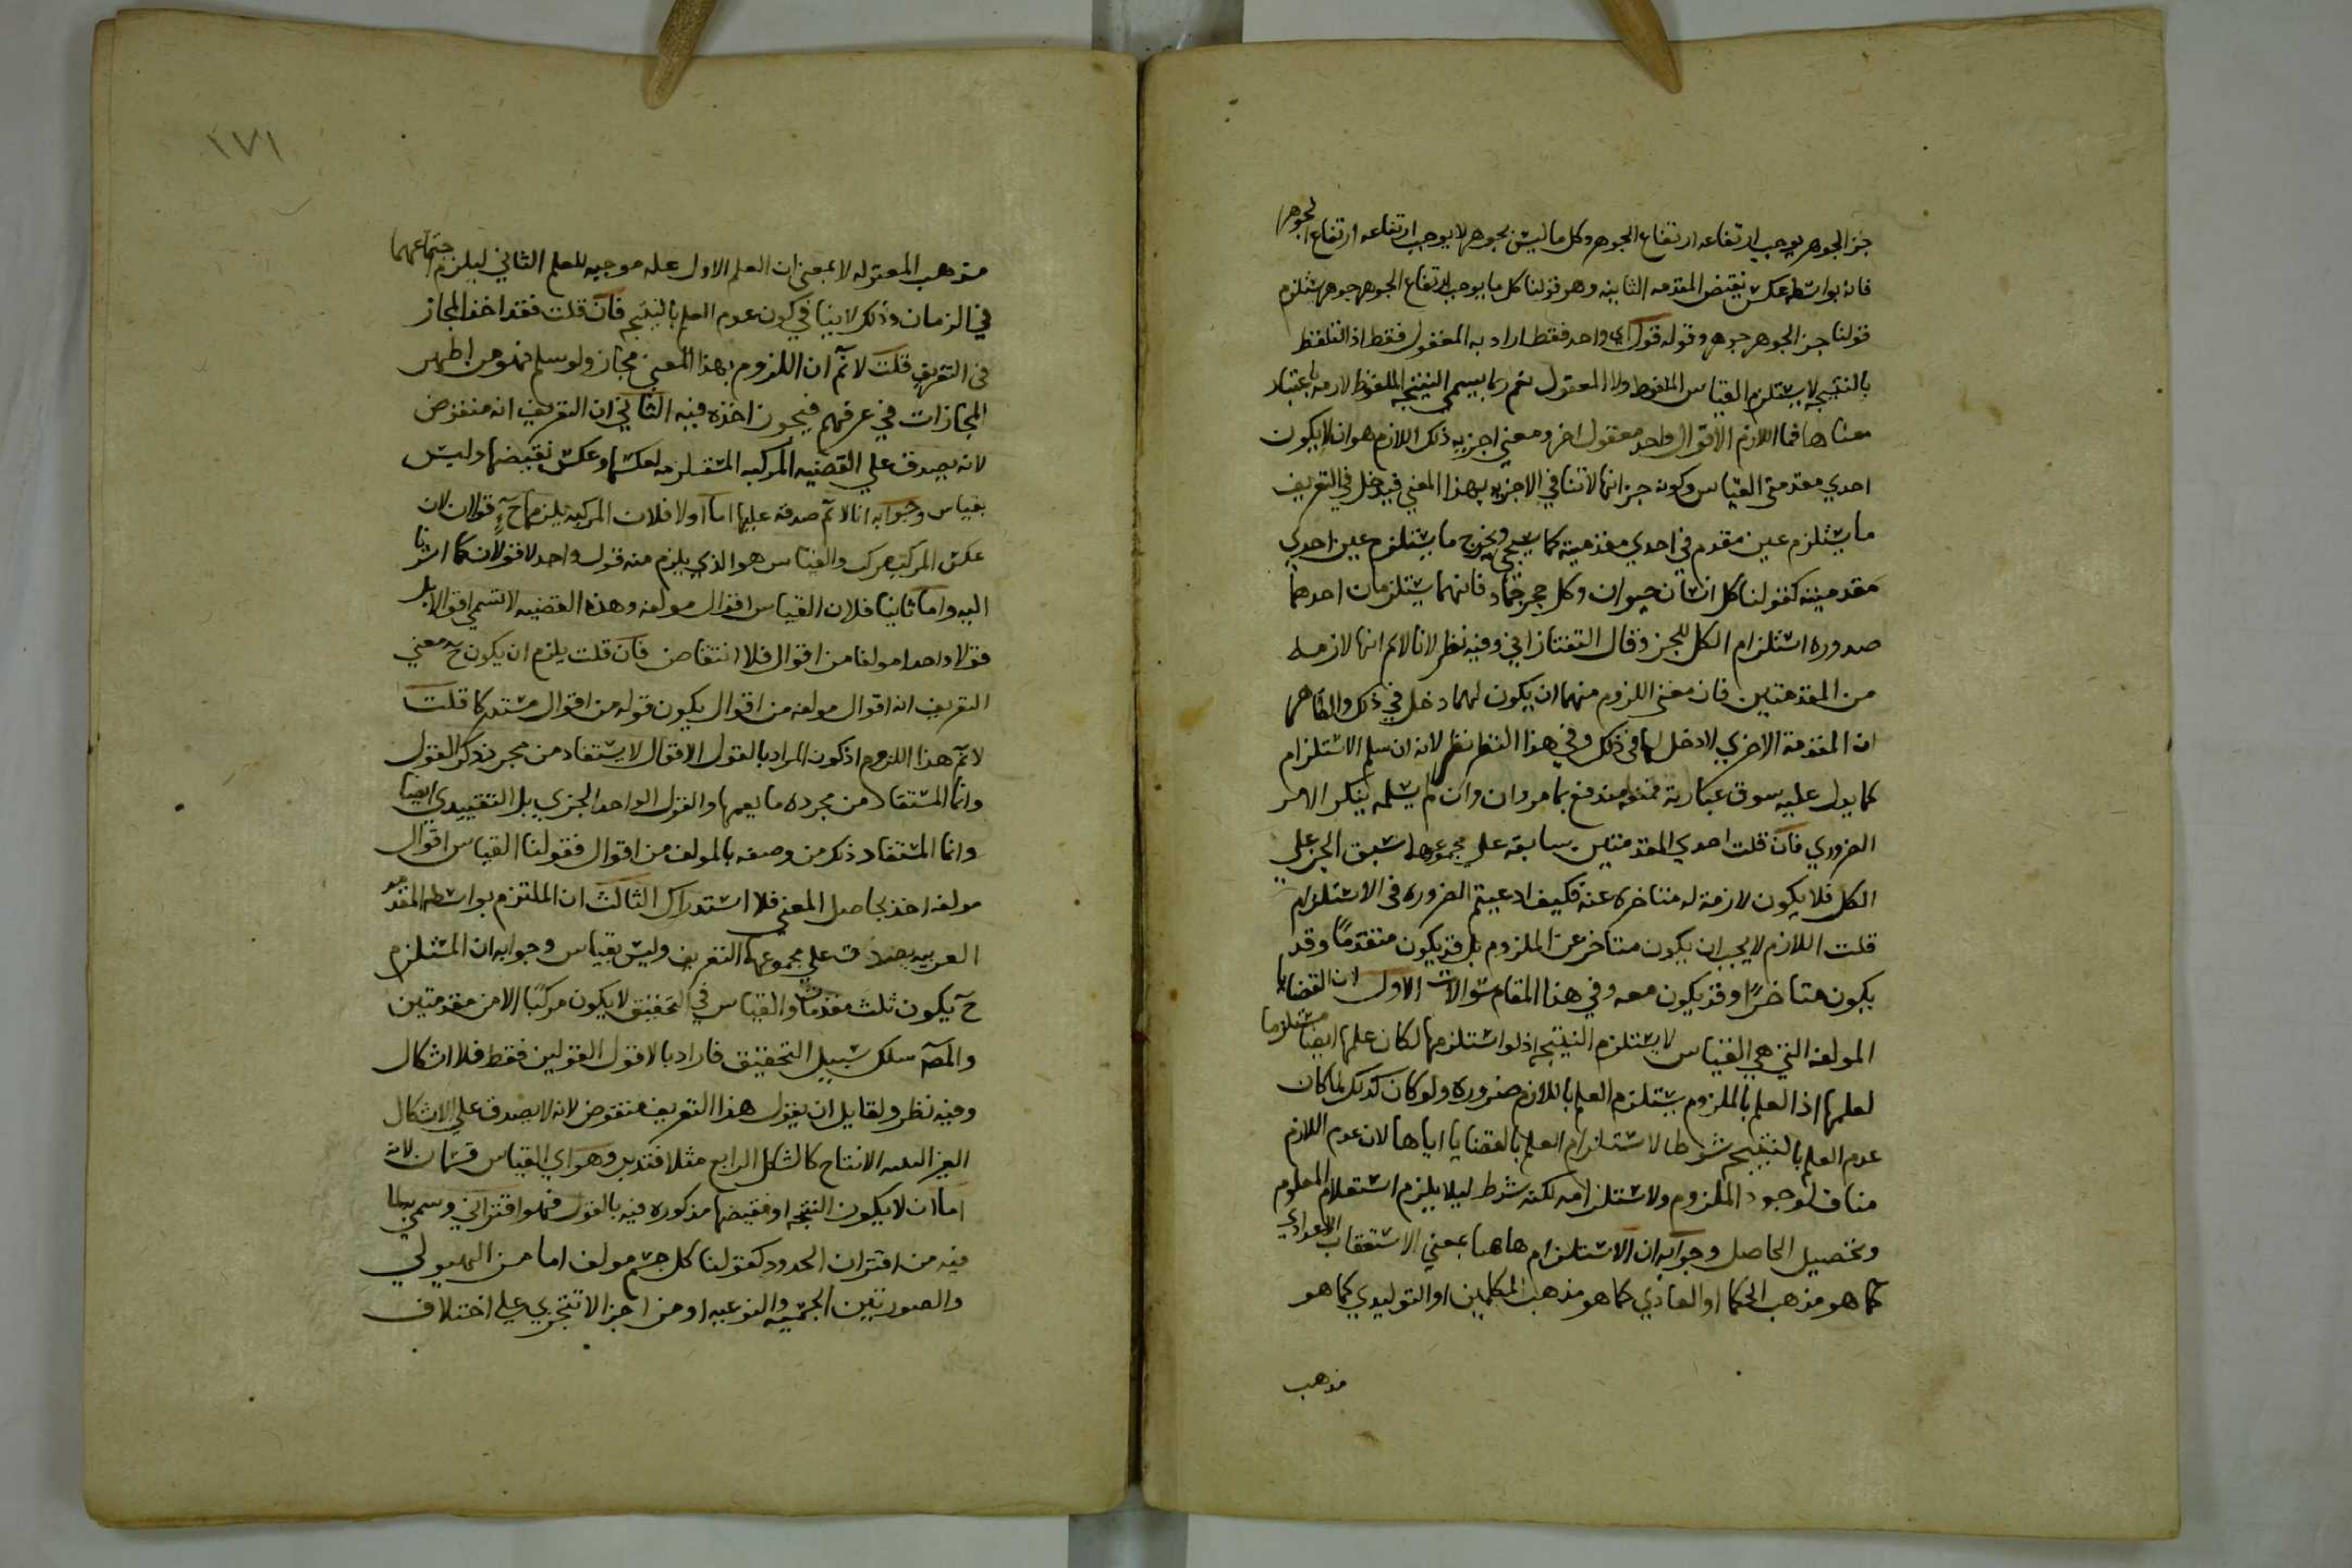 جزء الجوهر يوجب ارتفاعه ارتفاع الجوهر وكل ما ليس بجوهر لا يوجب ارتفاعه ارتفاع الجوهر
فانه بواسطه عكس نقيض المقدمه الثانيه وهو قولنا كل ما يوجب ارتفاع الجوهر جوهر يستلزم
قولنا جزء الجوهر جوهر وقوله قول اي واحد فقط اراد به المعقول فقط اذ التلفظ
بالنتيجه لا يستلزم القياس الملفوظ ولا المعقول نعم ربما يسمى النتيجه الملفوظ لازمه باعتبار
معناها فما اللازم الاقوال واحد معقول اخر ومعنى اخريه ذلك اللازم هو ان لا يكون
احدي مقدمتي القياس وكونه جزأنها لا تنافي الاخريه بهذا المعنى فيدخل في التعريف
ما يستلزم عين مقدم في احدي مقدمتيه كما سيجي ويخرج ما يستلزم عين احدي
مقدمتيه كقولنا كل انسان حيوان وكل حجر جماد فانهما يستلزمان احدهما
صدوره استلزام الكل للجزء وقال التفتازاني وفيه نظر لانا لانم انها لازمه
من المقدمتين فان معنى اللزوم منهما ان يكون لهما دخل في ذلك والظاهر
ان المقدمة الاخري لا دخل لها في ذلك وفي هذا النظر نظر لانه ان سلم الاستلزام
كما يدل عليه سوق عبارته فمنعه مندفع بما مر وان وان لم يسلمه ينكر الامر
الضروري فان قلت احدي المقدمتين سابقه على مجموعهما سبق الجزء على
الكل فلا يكون لازمة له متاخره عنه فكيف ادعيتم الضروره في الاستلزام
قلت اللازم لا يجب ان يكون متاخر عن الملزوم بل قد يكون متقدمًا وقد
يكون متاخرًا وقد يكون معه وفي هذا المقام سوالات الاول ان القضايا
المولفه التي هي القياس لا يستلزم النتيجه اذ لو استلزمها لكان علمها ايضا مستلزما
لعلمها اذ العلم بالملزوم يستلزم العلم باللازم ضروره ولو كان كذلك لما كان
عدم العلم بالنتيجه شرطا لاستلزام العلم بالقضايا اياها لان عدم اللازم
مناف لوجود الملزوم ولاستلزامه لكنه شرط ليلا يلزم استعلام المعلوم
وتحصيل الحاصل وجوابه ان الاستلزام هاهنا بمعنى الاستعقاب الاعدادي
كما هو مذهب الحكما او العادي كما هو مذهب المتكلمين او التوليدي كما هو
مذهب
١٧١
مذهب المعتزله لا بمعنى ان العلم الاول عله موجبه للعلم الثاني ليلزم اجتماعهما
في الزمان وذلك لا ينافي كون عدم العلم بالنتيجه فان قلت فقد اخذ المجاز
في التعريف قلت لانم ان اللزوم بهذا المعنى مجاز ولو سلم فهو من اظهر
المجازات في عرفهم فيجوز اخذه فيه الثاني ان التعريف انه منقوض
لانه يصدق على القضيه المركبه المستلزمه لعكسها وعكس نقيضها وليس
بقياس وجوابه انا لانم صدقه عليها اما اولا فلان المركبه يلزمها ح قولان لان
عكس المركب مركب والقياس هو الذي يلزم منه قول واحد لا قولان كما اشرنا
اليه واما ثانيا فلان القياس اقوال مولفه وهذه القضيه لا تسمى اقوالا بل
قولا واحدا مولفا من اقوال فلا انتقاض فان قلت يلزم ان يكون ح معنى
التعريف انه اقوال مولفه من اقوال يكون قوله من اقوال مستدركا قلت
لانم هذا اللزوم اذ كون المراد بالقول الاقوال لا يستفاد من مجرد ذكر القول
وانما المستفاد من مجرده ما يعمها والقول الواحد الجزي بل التقييدي ايضا
وانما المستفاد ذكر من وصفه بالمولف من اقوال فقولنا القياس اقوال
مولفه اخذ بحاصل المعنى فلا استدراك الثالث ان الملتزم بواسطه المقدمه
الغريبه يصدق على مجموعها التعريف وليس بقياس وجوابه ان المستلزم
ح يكون ثلث مقدمات والقياس في التحقيق لا يكون مركبا الا من مقدمتين
والمص سلك سبيل التحقيق فاراد بالاقول القولين فقط فلا اشكال
وفيه نظر ولقايل ان يقول هذا التعريف منقوض لانه لا يصدق على الاشكال
الغير البينه الانتاج كالشكل الرابع مثلا فتدبر وهو اي القياس قسمان لانه
اما ان لا يكون النتيجه او نقيضها مذكوره فيه بالفعل فهو اقتراني وسمي بها
فيه من اقتران الحدود كقولنا كل جسم مولف اما من الهيولي
والصورتين الجسميه والنوعيه او من اجزا لا تتجزي على اختلاف